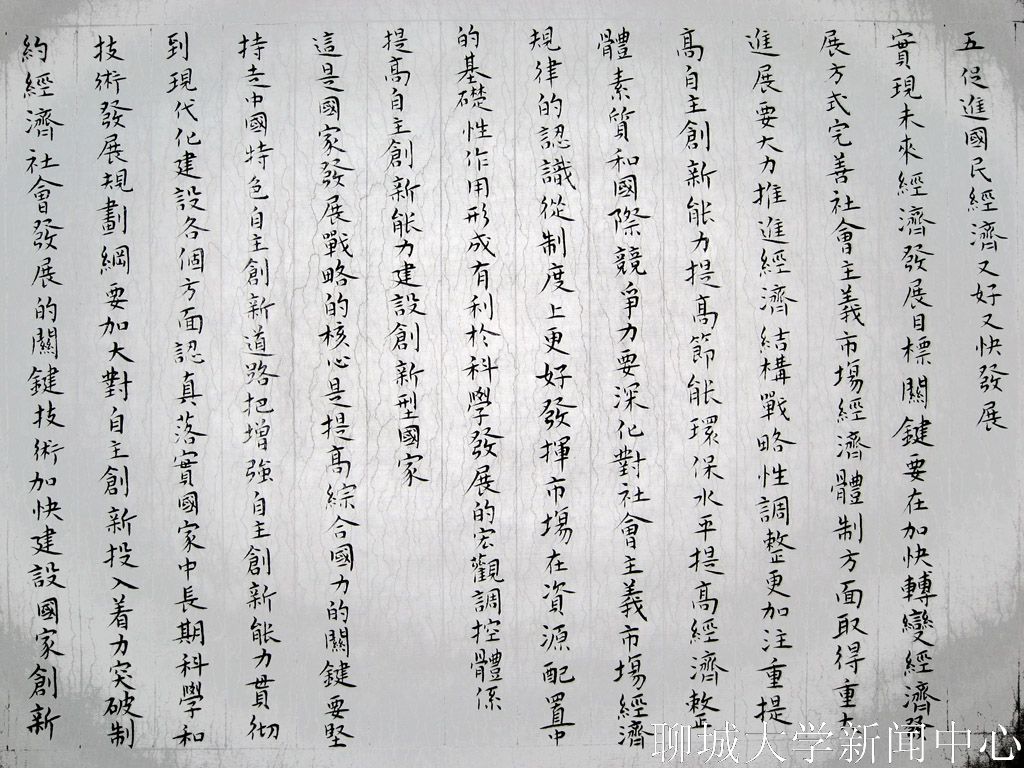 五促進國民經濟又好又快發展
實現未來經濟發展目標關鍵要在加快轉變經濟發
展方式完善社會主義市場經濟體制方面取得重大
進展要大力推進經濟結構戰略性調整更加注重提
高自主創新能力提高節能環保水平提高經濟整
體素質和國際競爭力要深化對社會主義市場經濟
規律的認識從制度上更好發揮市場在資源配置中
的基礎性作用形成有利於科學發展的宏觀調控體係
提高自主創新能力建設創新型國家
這是國家發展戰略的核心是提高綜合國力的關鍵要堅
持走中國特色自主創新道路把增強自主創新能力貫彻
到現代化建設各個方面認真落實國家中長期科學和
技術發展規劃綱要加大對自主創新投入着力突破制
約經濟社會發展的關鍵技術加快建設國家創新
聊城大学新闻中心